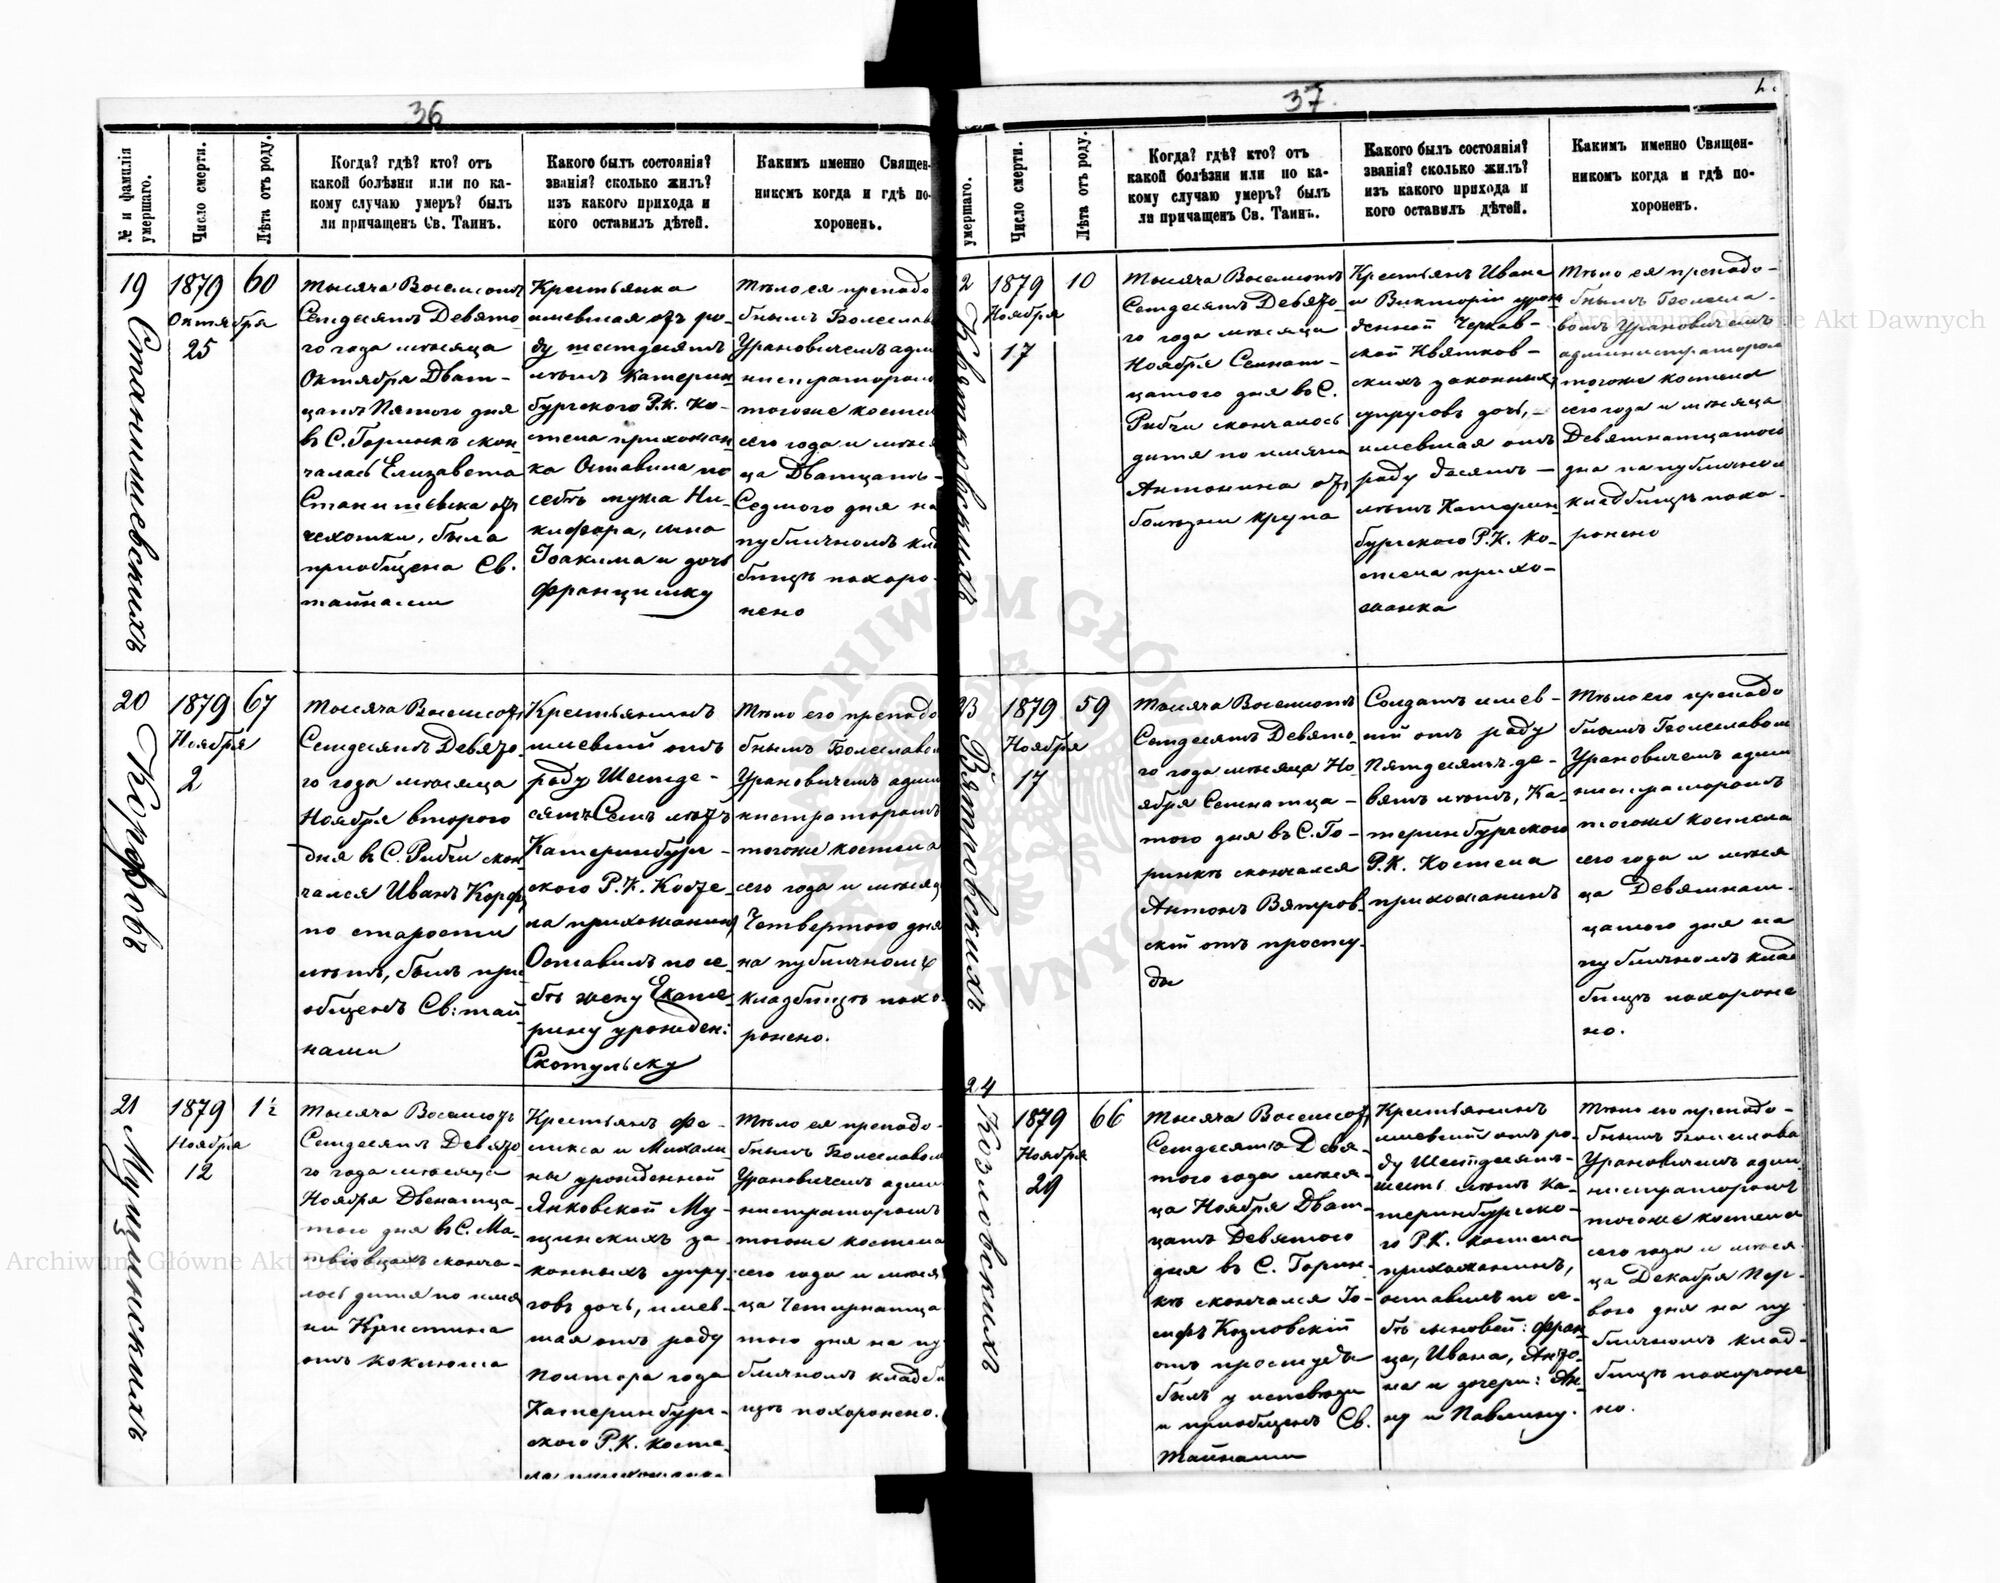 36
№ и фамилія умершаго.
Число смерти.
Лѣта отъ роду.
Когда? гдѣ? кто? отъ
какой болѣзни или по ка-
кому случаю умеръ? былъ
ли причащенъ Св. Таинъ.
Какого былъ состоянія?
званія? сколько жилъ?
изъ какого прихода и
кого оставилъ дѣтей.
Какимъ именно Священ-
никомъ когда и гдѣ по-
хороненъ.
19
Станишевскихъ
1879
Октября
25
60
Тысяча Восемсотъ
Семдесятъ Девято-
го года мѣсяца
Октября Дват-
цать Пятого дня
въ С. Горинкѣ скон-
чалась Елизавета
Станишевска отъ
чехотки, была
приобщена Св.
тайнами
Крестьянка
имевшая отъ ро-
ду шестдесятъ
лѣтъ Катерин-
бургского Р.К. Ко-
стела прихожан-
ка Оставила по
себѣ мужа Ни-
кифора, сына
Іоакима и дочь
Францишку
Тѣло ея преподо
бнымъ Болеслав
Урановичемъ адми
нистраторомъ
тогоже костел
сего года и мѣся
ца Дватцать-
Седмого дня на
публичномъ кла
бищѣ похоро-
нено
20
Корфовъ
1879
Ноября
2
67
Тысяча Восемсотъ
Семдесятъ Девято
го года мѣсяца
Ноября второго
дня въ С. Рибчи скон
чался Иванъ Корфъ
по старости
лѣтъ, былъ при
общенъ Св: тай
нами
Крестьянинъ
имевший отъ
роду Шестде-
сятъ Семъ лѣтъ
Катеринбург-
ского Р.К. Косте-
ла прихожанинъ
Оставилъ по се-
бѣ жену Екате-
рину урожден:
Скотульску
Тѣло его преподо
бнымъ Болеславом
Урановичемъ адми
нистраторомъ
тогоже костела
сего года и мѣсяц
Четвертого дня
на публичномъ
кладбищѣ похо-
ронено.
21
Мущинскихъ
1879
Ноября
12
1½
Тысяча Восемсотъ
Семдесятъ Девято
го года мѣсяца
Ноября Двенатца-
того дня въ С. Ма-
твіовцахъ сконча-
лось дитя по имя
ни Кристина
отъ коклюша
Крестьянъ Фе-
ликса и Михали-
ны урожденной
Янковской Му-
щинскихъ за-
конныхъ супру-
говъ дочь, имев-
шая отъ роду
Полтора года
Катеринбург-
ского Р.К. косте-
ла прихожанка
Тѣло ея преподо-
бнымъ Болеславом
Урановичемъ адми
нистраторомъ
тогоже костела
сего года и мѣся
ца Четирнатца
того дня на пу
бличномъ кладби
щѣ похоронено.
37
умершаго.
Число смерти.
Лѣта отъ роду.
Когда? гдѣ? кто? отъ
какой болѣзни или по ка-
кому случаю умеръ? былъ
ли причащенъ Св. Таинъ.
Какого былъ состоянія?
званія? сколько жилъ?
изъ какого прихода и
кого оставилъ дѣтей.
Какимъ именно Священ-
никомъ когда и гдѣ по-
хороненъ.
2
Квятковскихъ
1879
Ноября
17
10
Тысяча Восемсотъ
Семдесятъ Девято-
го года мѣсяца
Ноября Семнат-
цатого дня въ С.
Рибчи скончалось
дитя по имяни
Антонина отъ
болѣзни крупа
Крестьянъ Ивана
и Викторіи урож
денной Черков-
ской Квятков-
скихъ законныхъ
супруговъ дочь,-
имевшая отъ
роду десять-
лѣтъ Катерин-
бургского Р.К. ко-
стела прихо-
жанка
Тѣло ея преподо-
бнымъ Болесла-
вомъ Урановичемъ
администратором
тогоже костела
сего года и мѣсяца
Девятнатцатого
дня на публичном
кладбищѣ похо-
ронено
23
Вятровскихъ
1879
Ноября
17
59
Тысяча Восемсотъ
Семдесятъ Девято-
го года мѣсяца Но-
ября Семнатца-
того дня въ С. Го-
ринкѣ скончался
Антонъ Вятров-
скій отъ просту-
ды
Солдатъ имев-
ший отъ роду
Пятдесятъ де-
вять лѣтъ, Ка-
теринбургского
Р.К. Костела
прихожанинъ
Тѣло его преподо
бнымъ Болеславом
Урановичемъ адми
нистраторомъ
тогоже костела
сего года и мѣся
ца Девятнат-
цатого дня на
публичномъ клад
бищѣ похороне
но.
24
Козловскихъ
1879
Ноября
29
66
Тысяча Восемсотъ
Семдесятъ Девя-
того года мѣся-
ца Ноября Дват-
цать Девятого
дня въ С. Горин-
кѣ скончался Іо-
сифъ Козловскій
отъ простуды
былъ у исповѣди
и приобщенъ Св.
Тайнами
Крестьянинъ
имевший отъ ро-
ду Шестдесятъ-
шесть лѣтъ Ка-
теринбургско-
го Р.К. костела
прихожанинъ,
оставилъ по се-
бѣ сыновей: Фран-
ца, Ивана, Анто-
на и дочери: Ан-
ну и Павлину.
Тѣло его преподо-
бнымъ Болеслава
Урановичемъ адми
нистраторомъ
тогоже костела
сего года и мѣся-
ца Декабря Пер-
вого дня на пу-
бличномъ клад-
бищѣ похороне
но.
ARCHIWUM GŁÓWNE AKT DAWNYCH
Archiwum Główne Akt Dawnych
Archiwum Główne Akt Dawnych